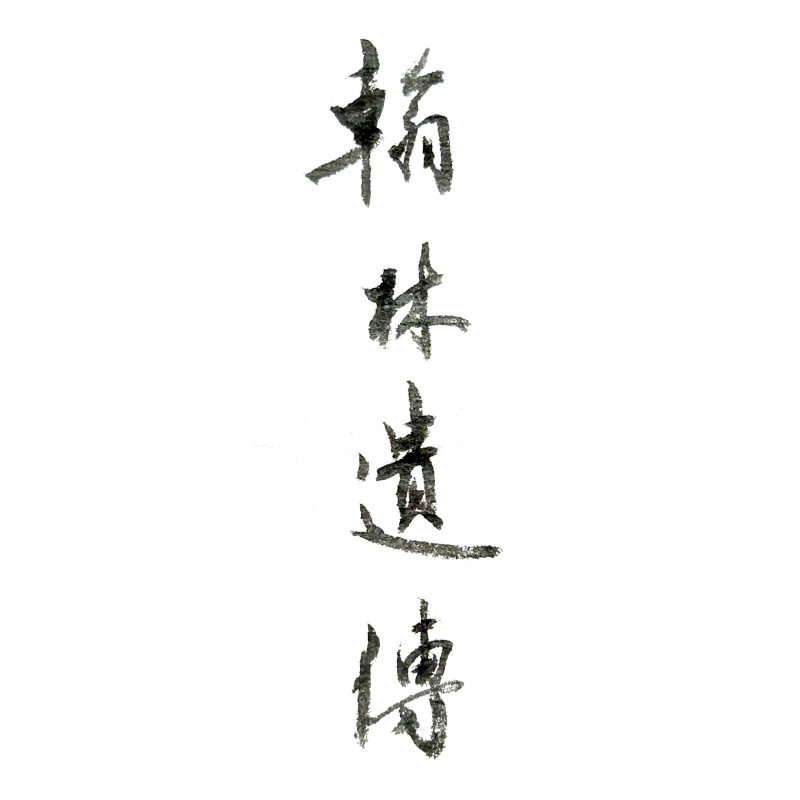 翰林遺傳